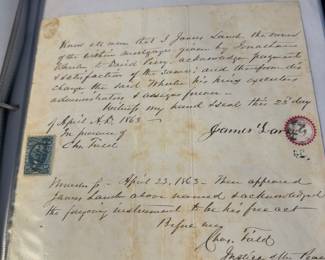 Know all men that I James Land the owner
of the within mortgage given by Jonathan
Wheeler to David Perry, acknowledge payment
& satisfaction of the same; and therefore dis
charge the said Wheeler his heirs executors
administrators & assigns forever —
Witness my hand & seal this 23d day
of April A.D. 1863 —
In presence of
Chs. Field
James Land
April 23, 1863 — Then appeared
James Land above named & acknowledged
the foregoing instrument to be his free act
Before me,
Chas. Field
Justice of the Peace